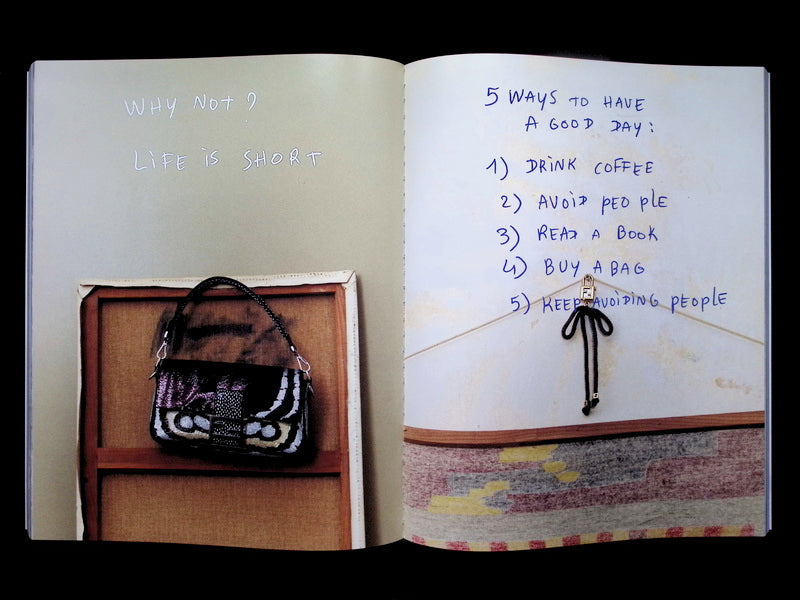 WHY NOT?
LIFE IS SHORT
5 WAYS TO HAVE
A GOOD DAY:
1) DRINK COFFEE
2) AVOID PEOPLE
3) READ A BOOK
4) BUY A BAG
5) KEEP AVOIDING PEOPLE